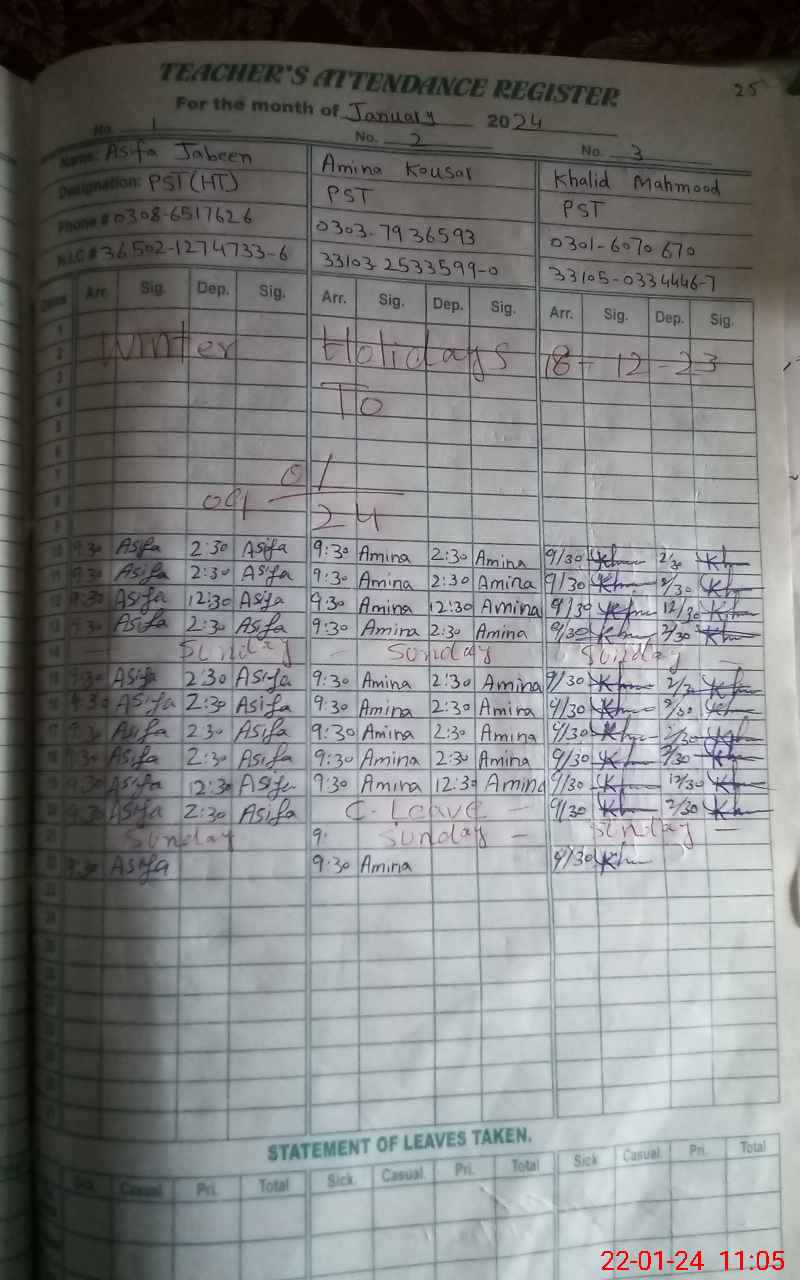 TEACHER'S ATTENDANCE REGISTER
25
For the month of January 2024
No. 1 No. 2 No. 3
Name: Asifa Jabeen Amina Kousar Khalid Mahmood
Designation: PST (HT) PST PST
Phone # 0308-6517626 0303-7936593 0301-6070670
N.I.C # 36502-1274733-6 33103-2533599-0 33105-0334446-7
Arr. Sig. Dep. Sig. Arr. Sig. Dep. Sig. Arr. Sig. Dep. Sig.
1
2 Winter Holidays 18-12-23
3
4 To
5
6
7
8 09/ 01/
9 24
10 9:30 Asifa 2:30 Asifa 9:30 Amina 2:30 Amina 9/30 2/30
11 9:30 Asifa 2:30 Asifa 9:30 Amina 2:30 Amina 9/30 2/30
12 9:30 Asifa 12:30 Asifa 9:30 Amina 12:30 Amina 9/30 12/30
13 9:30 Asifa 2:30 Asifa 9:30 Amina 2:30 Amina 9/30 2/30
14 Sunday - Sunday - Sunday -
15 9:30 Asifa 2:30 Asifa 9:30 Amina 2:30 Amina 9/30
16 9:30 Asifa 2:30 Asifa 9:30 Amina 2:30 Amina 9/30 2/30
17 9:30 Asifa 2:30 Asifa 9:30 Amina 2:30 Amina 9/30 2/30
18 9:30 Asifa 2:30 Asifa 9:30 Amina 2:30 Amina 9/30 2/30
19 9:30 Asifa 12:30 Asifa 9:30 Amina 12:30 Amina 9/30 12/30
20 9:30 Asifa 2:30 Asifa C. Leave - 9/30 2/30
21 Sunday 9: Sunday - Sunday -
22 9:30 Asifa 9:30 Amina 9/30
STATEMENT OF LEAVES TAKEN.
Sick Casual Pri. Total Sick Casual Pri. Total Sick Casual Pri. Total
22-01-24 11:05